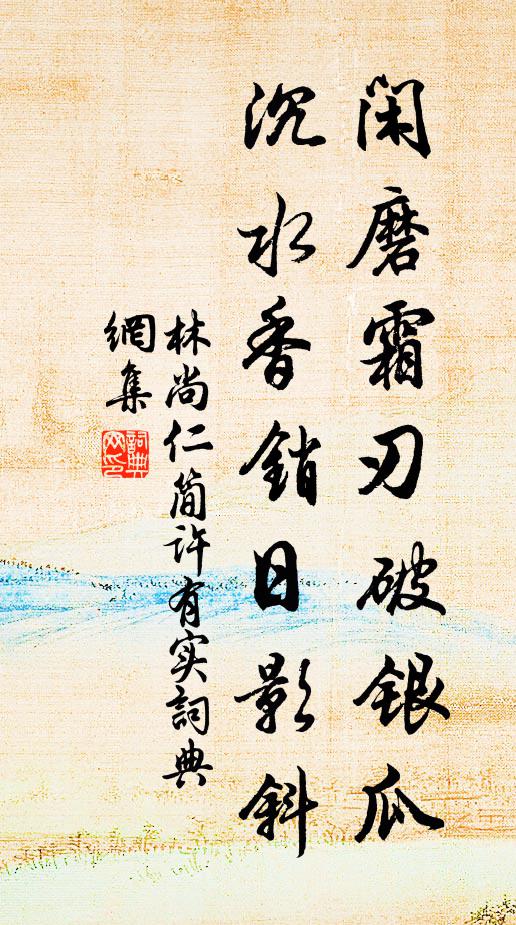 闲磨霜刃破银瓜
沉水香銷日影斜
林尚仁简许有实詞典
網集
詞典
网印